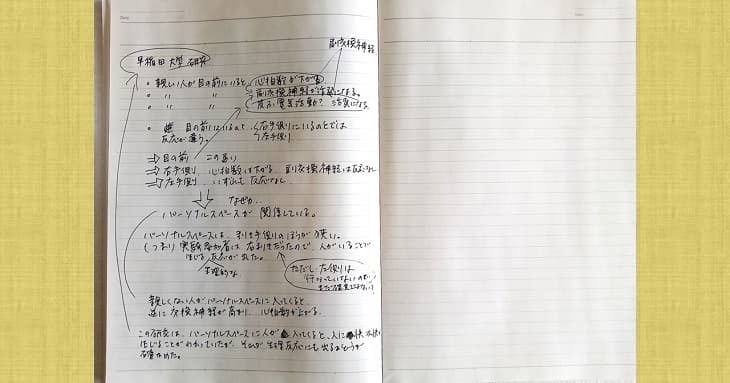 Date
副交感神経
早稲田大学 研究
・親しい人が目の前にいると 心拍数が下がる
・ 〃 〃 副交感神経が活発になる。
・ 〃 〃 皮ふ電気活動? 活発になる
・ 目の前にいるのと 右手側にいるのとでは
反応が違う。 左手側
⇒ 目の前 この通り
⇒ 右手側 心拍数は下がる 副交感神経は反応なし
⇒ 左手側 いずれも反応なし
なぜか…
パーソナルスペースが 関係している。
パーソナルスペースは、利き手側のほうが狭い。
(つまり 実験参加者は 右利きだったので、人がいることで
生じる反応が出た。
生理的な
ただし 左利きは
行なっていないのも
まだ確実ではない)
親しくない人が パーソナルスペースに入ってくると
逆に 交感神経が高まり、心拍数が上がる。
この研究は、パーソナルスペースに人が 入ってくると、人に 快・不快
生じることがわかっていたが、それが 生理反応にも 出るかどうか
確かめた。